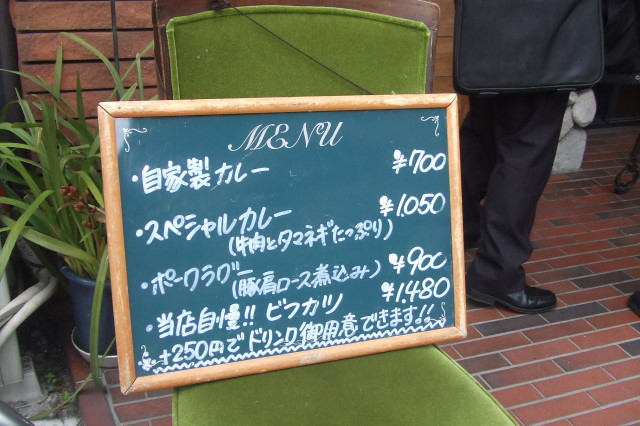 MENU
・自家製カレー ¥700
・スペシャルカレー ¥1,050
(牛肉とタマネギたっぷり)
・ポークラグー(豚肩ロース煮込み) ¥900
・当店自慢!! ビフカツ ¥1,480
+250円でドリンク御用意できます!!